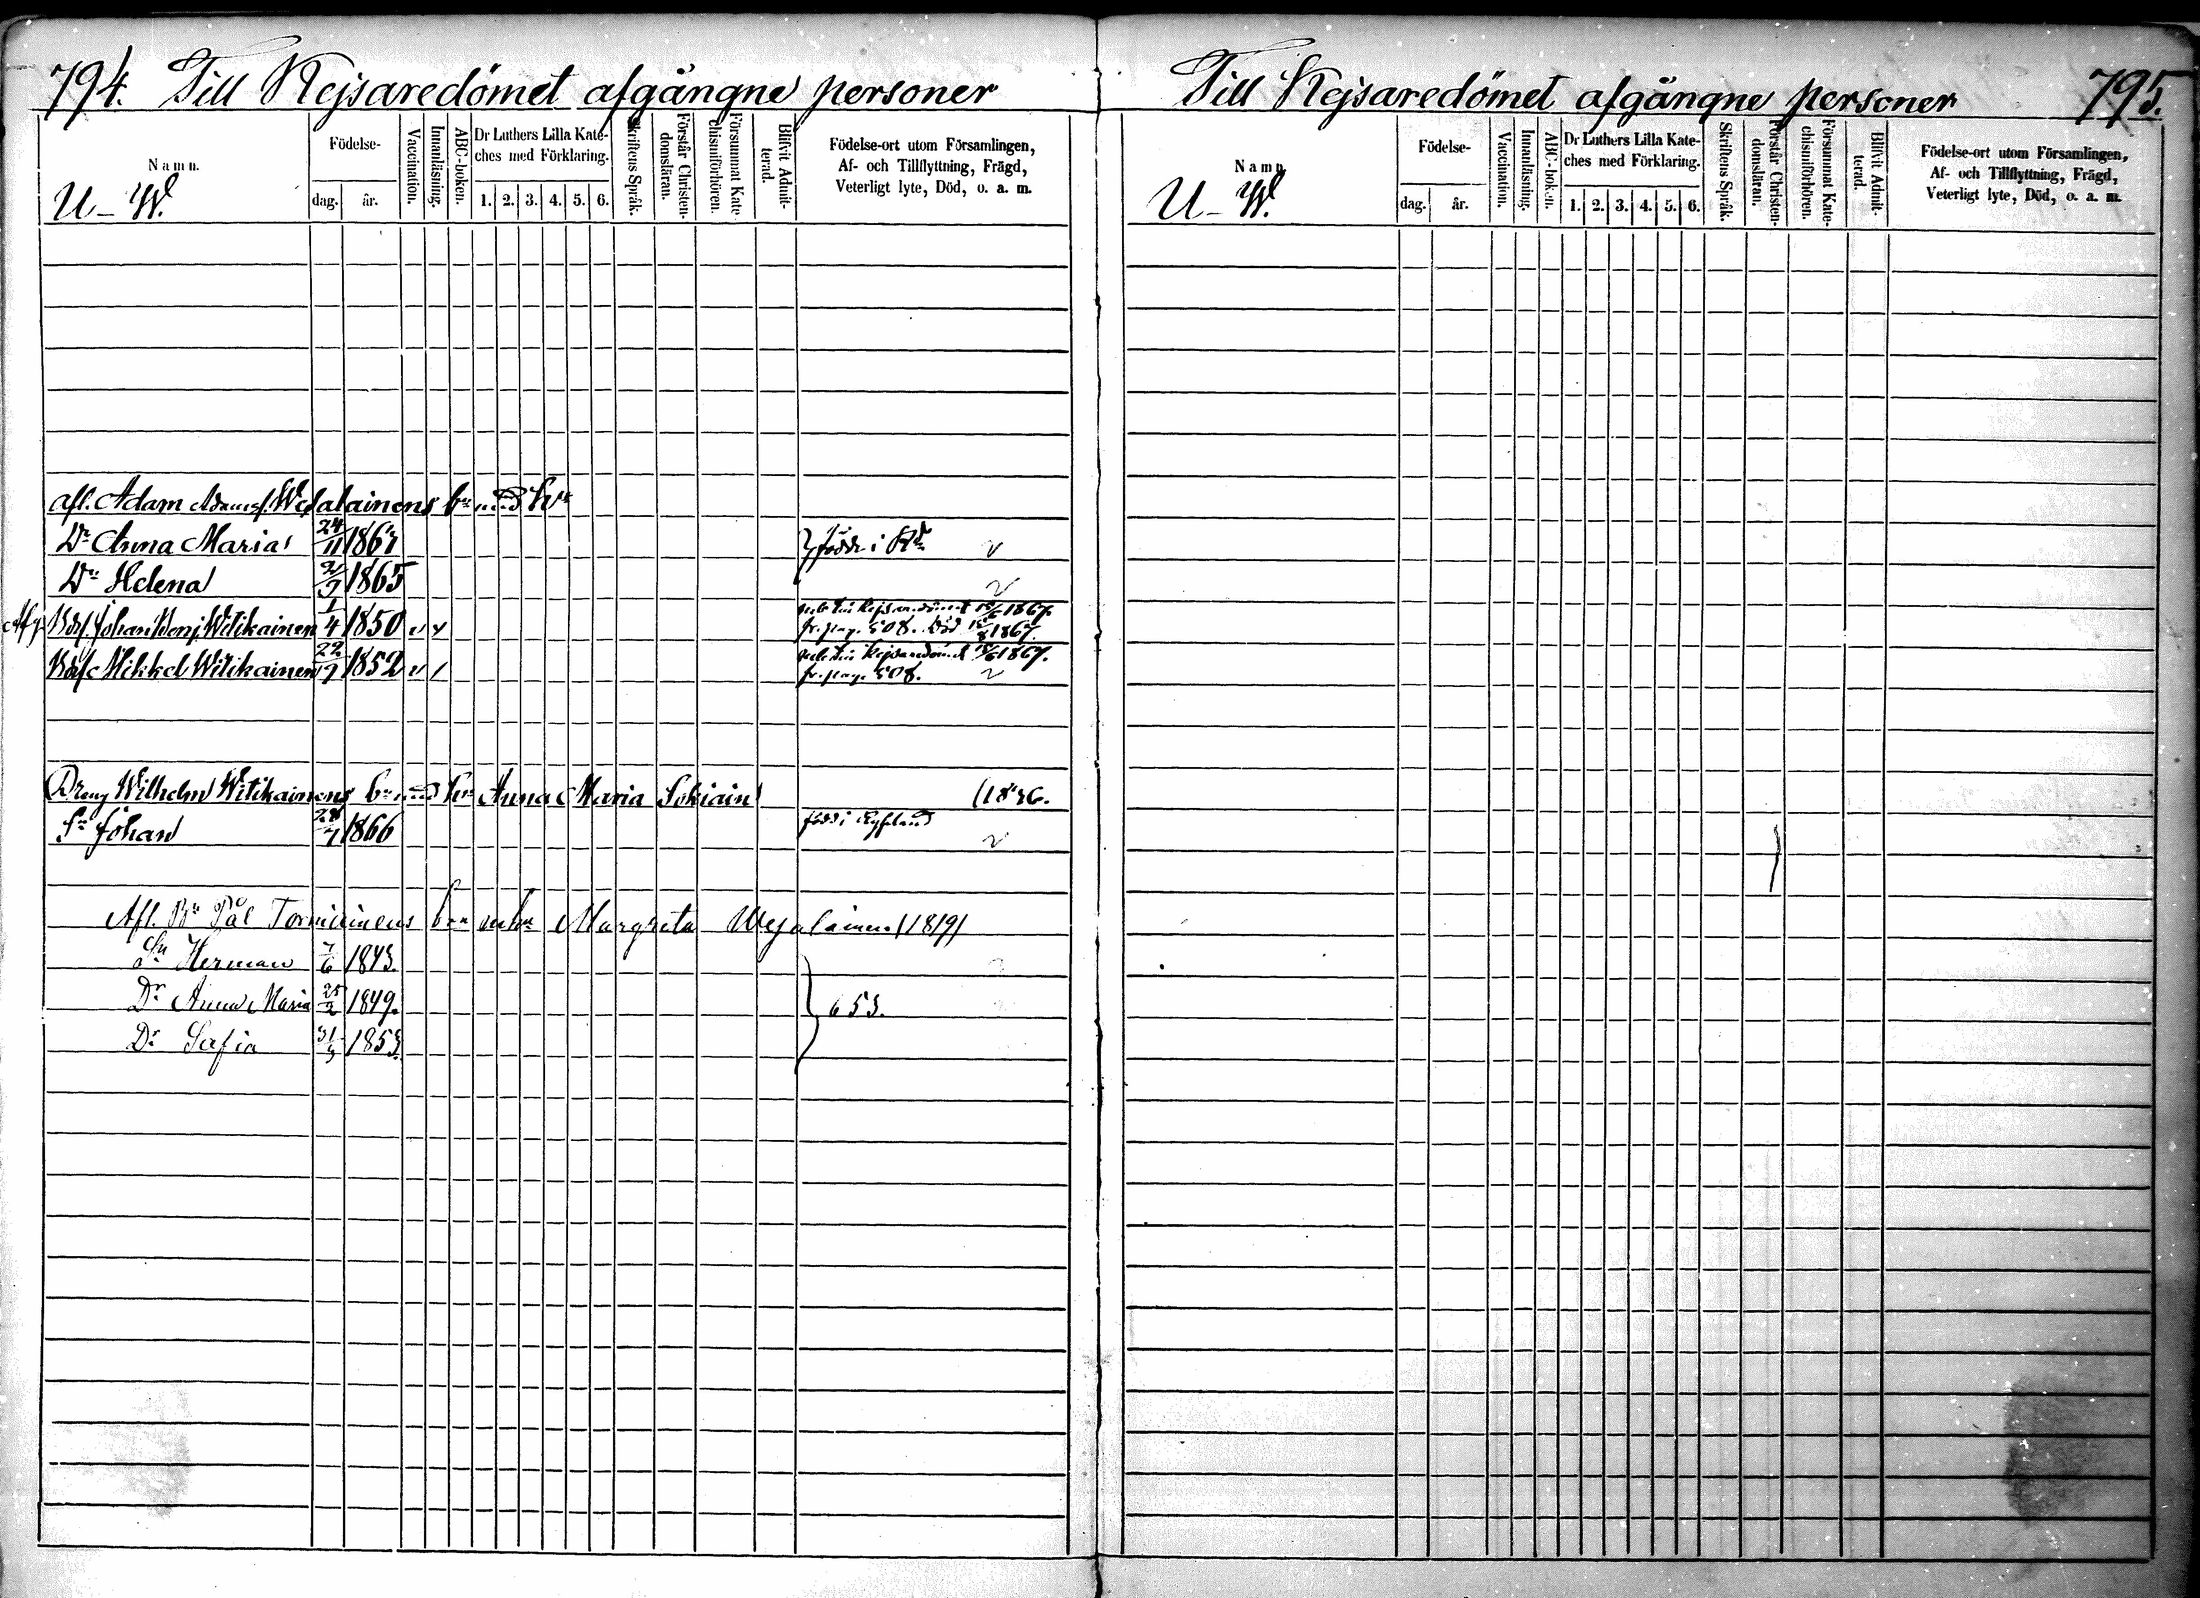 794. Till Kejsaredömet afgångne personer
Namn.
U–W.
Födelse-
dag. år.
Vaccination.
Innanläsning.
ABC-boken.
Dr Luthers Lilla Kate-
ches med Förklaring.
1. 2. 3. 4. 5. 6.
Skriftens Språk.
Förstår Christen-
domsläran.
Försummat Kate-
chismiförhören.
Blifvit Admit-
terad.
Födelse-ort utom Församlingen,
Af- och Tillflyttning, Frägd,
Veterligt lyte, Död, o. a. m.
afl. Adam Adamsf.
Dr Anna Maria 24/11 födde i
Dr Helena 1865
Johan Benj. Witikainen 1/4 1850 1867.
fr. pag. 508. Död 1867.
Mikkel Witikainen 1852 1867.
fr. pag. 508.
Dreng Wilhelm Witikainens Anna Maria
Sn Johan 1866 född i
Afl. Bn Pål Margreta Wejalainen (1819)
Sn Herman 7/6 1843.
Dr Anna Maria 25/2 1849. 653.
Dr Safia 1853.
Till Kejsaredömet afgångne personer 795.
Namn.
U–W.
Födelse-
dag. år.
Vaccination.
Innanläsning.
ABC-boken.
Dr Luthers Lilla Kate-
ches med Förklaring.
1. 2. 3. 4. 5. 6.
Skriftens Språk.
Förstår Christen-
domsläran.
Försummat Kate-
chismiförhören.
Blifvit Admit-
terad.
Födelse-ort utom Församlingen,
Af- och Tillflyttning, Frägd,
Veterligt lyte, Död, o. a. m.